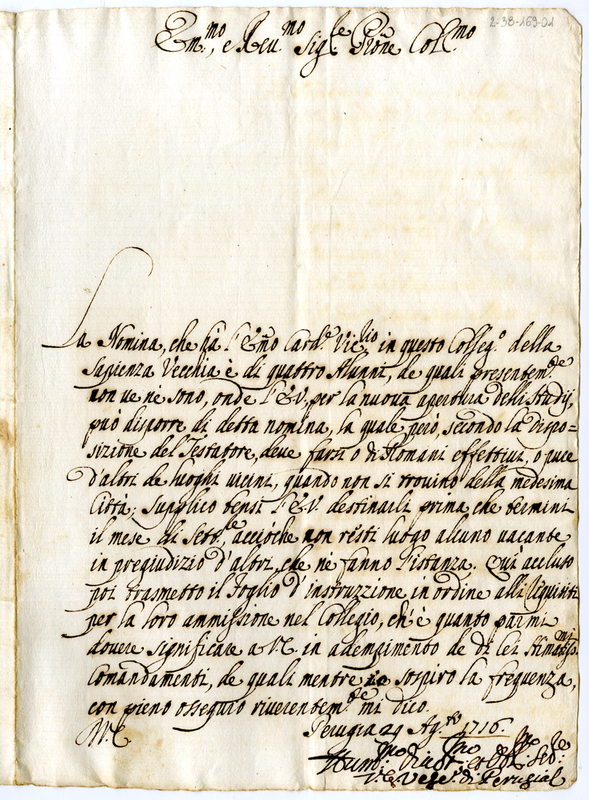 2-38-169-01
Em.mo, e Reu.mo Sig.re P'rone Coll.mo
La Nomina, che hà l'Em̃o Card.e Vic.rio in questo Colleg.o della
Sapienza Vecchia è di quattro Alunni, de quali presentem.te
non ue ne sono, onde l'E.V. per la nuoua apertura delli Studij,
può disporre di detta nomina, la quale però, secondo la dispo=
sizione del Testatore, deue farsi o di Romani effettiui, o pure
d'altri de luoghi uicini, quando non si trouino della medesima
Città; Supplico bensì l'E.V. destinarli prima, che termini
il mese di Sett.e acciòche non resti luogo alcuno uacante
in pregiudizio d'altri, che ne fanno l'istanza. Qui accluso
poi trasmetto il Foglio d'instruzzione in ordine alli requisiti
per la loro ammissione nel Collegio, ch'è quanto parmi
douere significare a V.E. in adempimento de di lei stimatiss.mi
Comandamenti, de quali mentre io sospiro la frequenza,
con pieno ossequio riuerentem.te mi dico.
Perugia 29 Ag.sto 1716.
V.E.
Hum.mo Diuot.mo et Obl.mo Ser.re
V. Vesc.o di Perugia